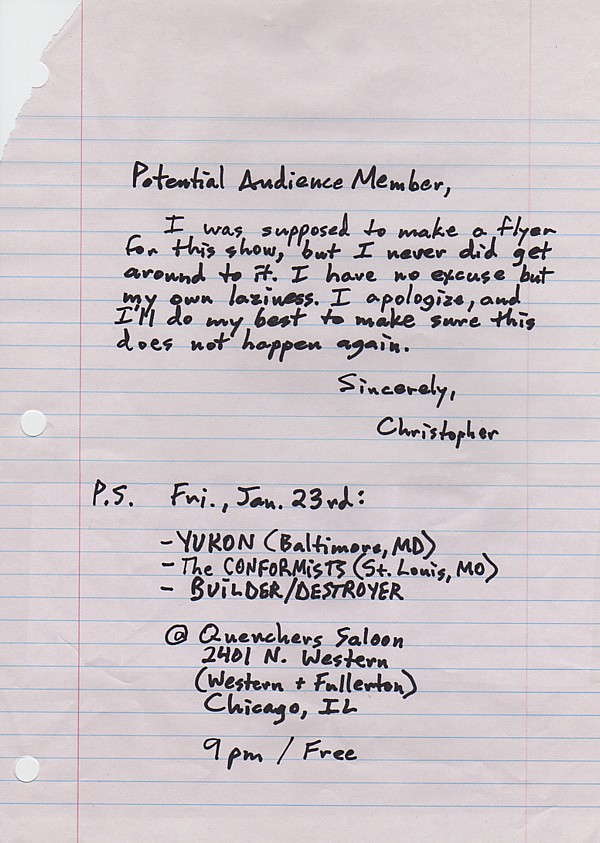 Potential Audience Member,
I was supposed to make a flyer
for this show, but I never did get
around to it. I have no excuse but
my own laziness. I apologize, and
I'll do my best to make sure this
does not happen again.
Sincerely,
Christopher
P.S. Fri., Jan. 23rd:
- YUKON (Baltimore, MD)
- The CONFORMiSTS (St. Louis, MO)
- BUiLDER/DESTROYER
@ Quenchers Saloon
2401 N. Western
(Western + Fullerton)
Chicago, IL
9pm / Free